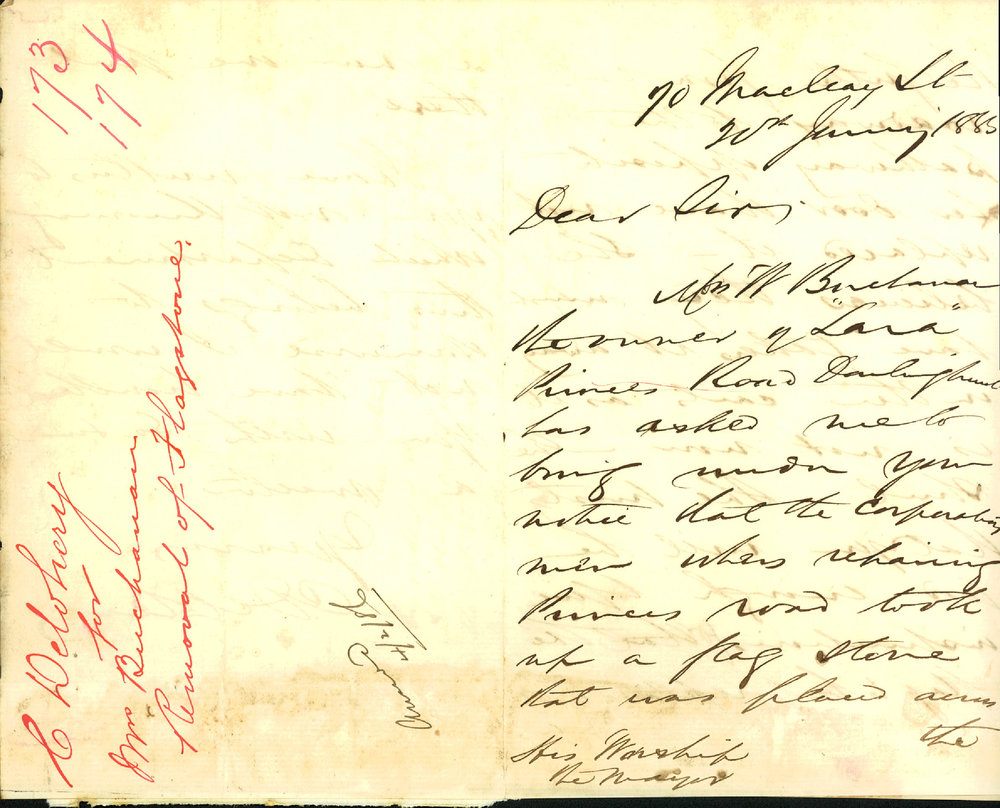 173
174
C Delohery
for
Mrs Buchanan
Removal of Flagstone.
70 Macleay St
Dear Sir,
Mrs W Buchanan
the owner of "Lara"
Princes Road Darlinghurst
has asked me to
bring under your
notice that the Corporation
men when repairing
Princes road took
up a flag stone
that was placed across
the
His Worship
the Mayor